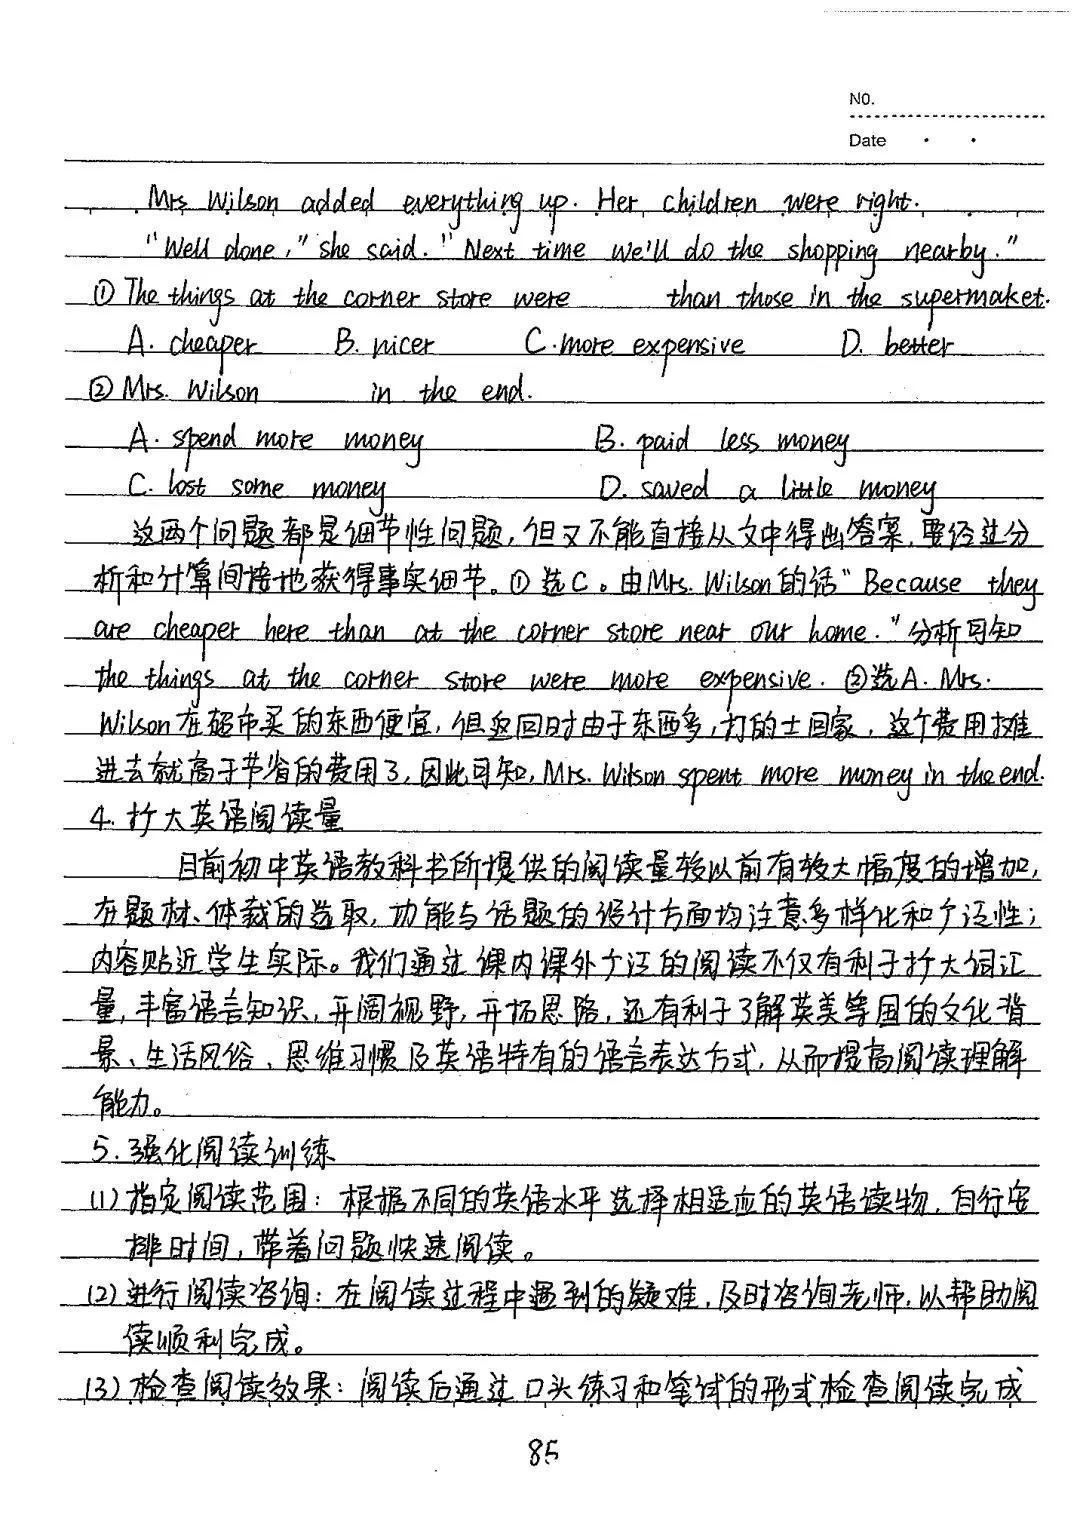 NO.
Date
Mrs Wilson added everything up. Her children were right.
"Well done," she said. "Next time we'll do the shopping nearby."
① The things at the corner store were than those in the supermaket.
A. cheaper B. nicer C. more expensive D. better
② Mrs. Wilson in the end.
A. spend more money B. paid less money
C. lost some money D. saved a little money
这两个问题都是细节性问题,但又不能直接从文中得出答案,要经过分
析和计算间接地获得事实细节。①选C。由Mrs. Wilson的话"Because they
are cheaper here than at the corner store near our home."分析可知
the things at the corner store were more expensive. ②选A. Mrs.
Wilson在超市买的东西便宜,但返回时由于东西多,打的士回家,这个费用摊
进去就高于节省的费用了,因此可知,Mrs. Wilson spent more money in the end.
4. 扩大英语阅读量
目前初中英语教科书所提供的阅读量较以前有较大幅度的增加,
在题材、体裁的选取,功能与话题的设计方面均注意多样化和广泛性;
内容贴近学生实际。我们通过课内课外广泛的阅读不仅有利于扩大词汇
量,丰富语言知识,开阔视野,开拓思路,还有利于了解英美等国的文化背
景、生活风俗、思维习惯及英语特有的语言表达方式,从而提高阅读理解
能力。
5. 强化阅读训练
(1)指定阅读范围:根据不同的英语水平选择相适应的英语读物,自行安
排时间,带着问题快速阅读。
(2)进行阅读咨询:在阅读过程中遇到的疑难,及时咨询老师,以帮助阅
读顺利完成。
(3)检查阅读效果:阅读后通过口头练习和笔试的形式检查阅读完成
85